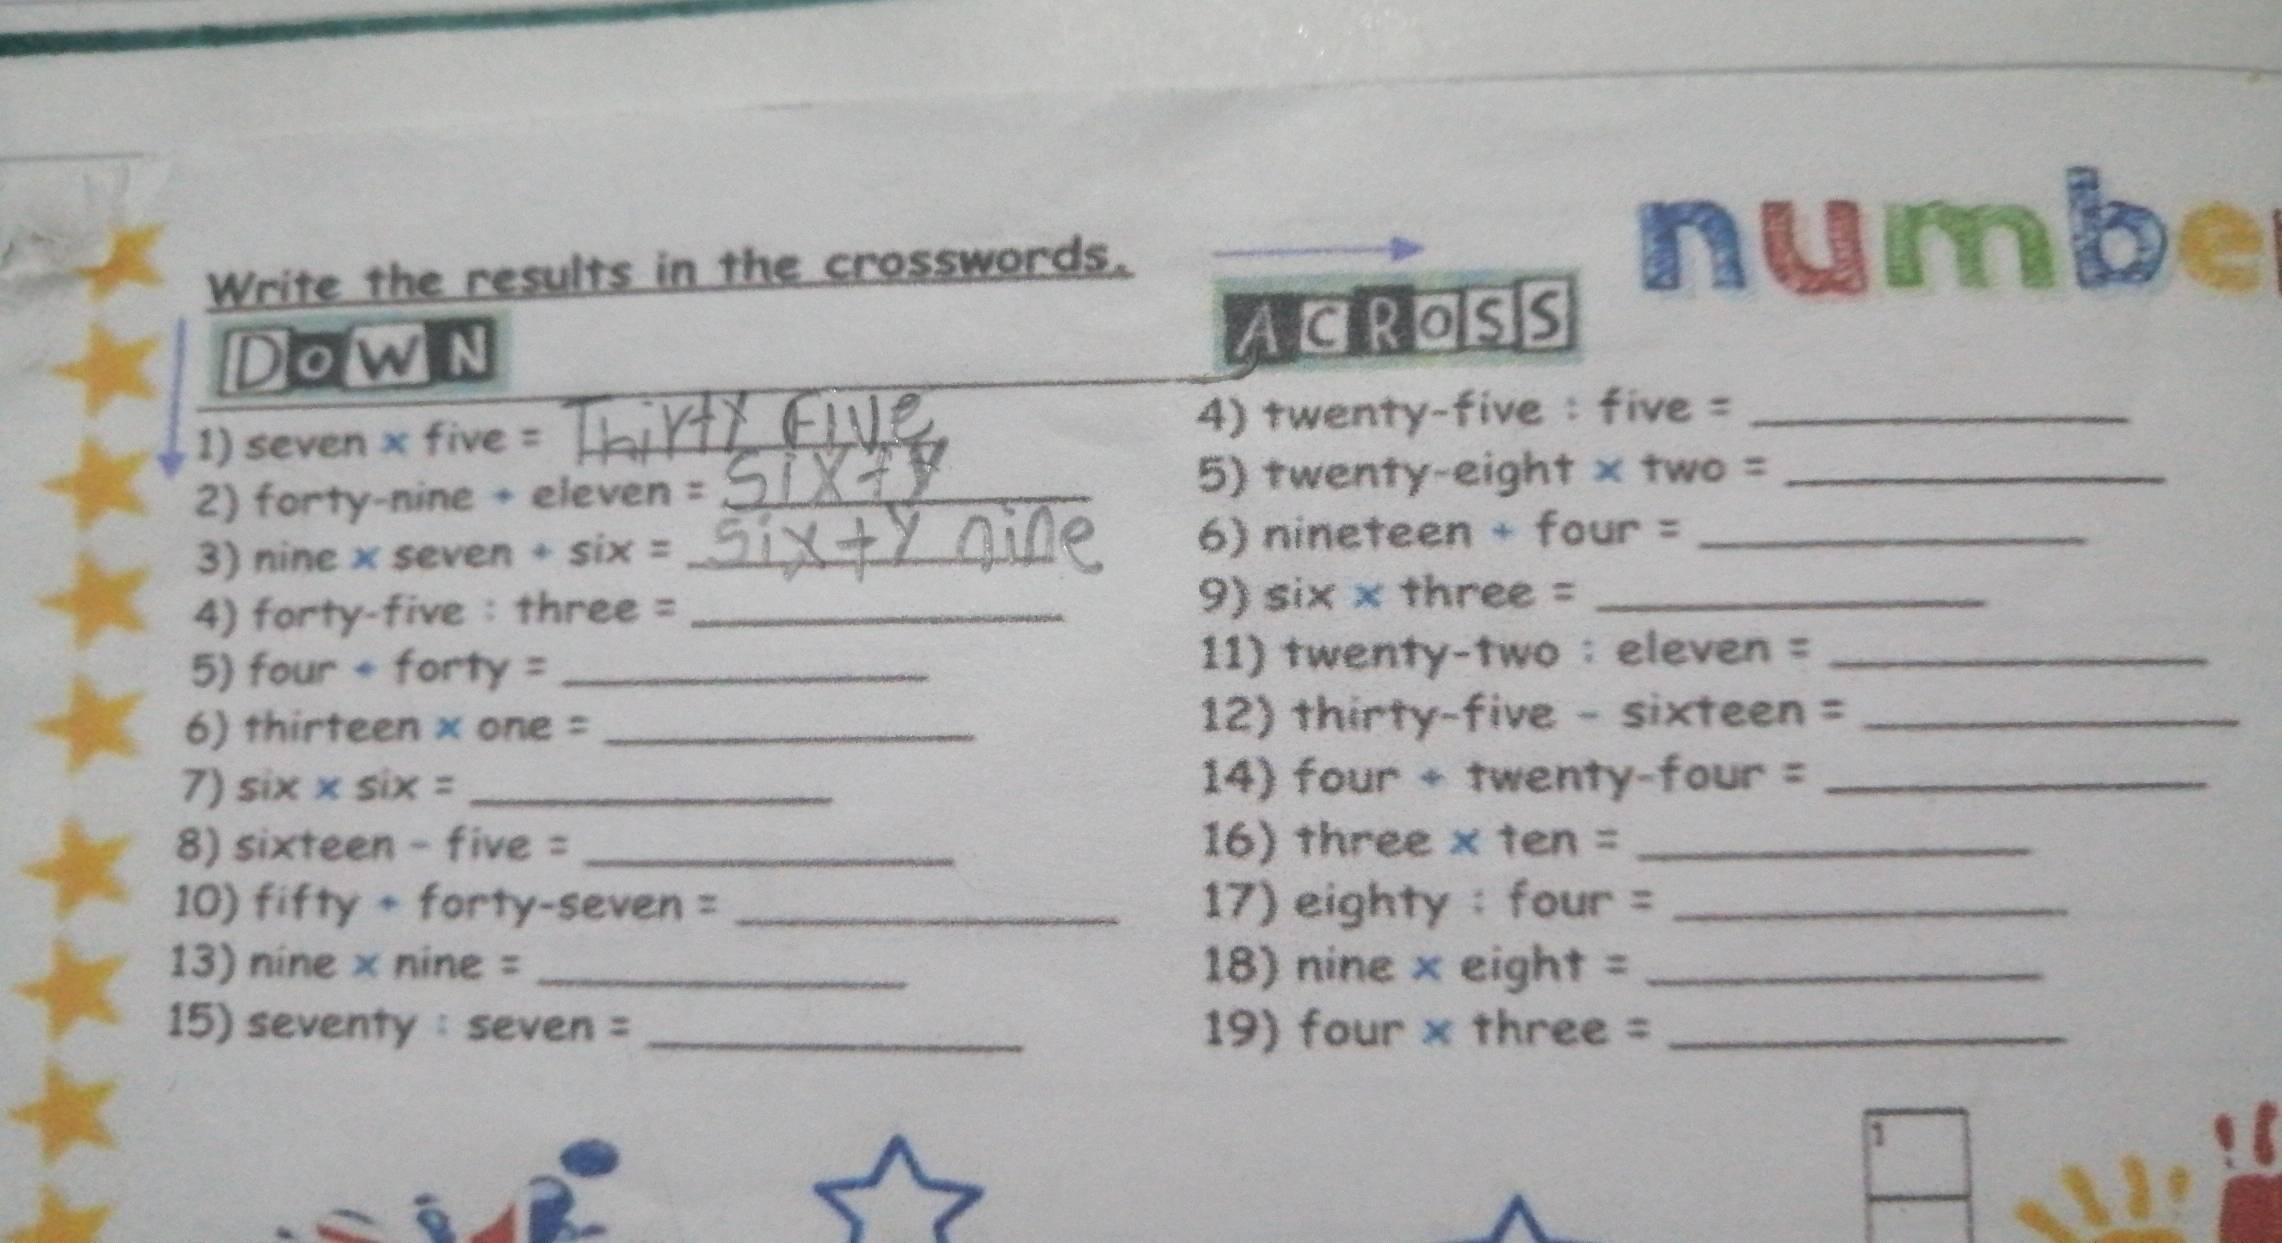 numbe
Write the results in the crosswords.
DOWN
1) seven x five = Thirty Five
2) forty-nine + eleven = sixty
3) nine x seven + six = sixty nine
4) forty-five : three = ____
5) four + forty = ____
6) thirteen x one = ____
7) six x six = ____
8) sixteen - five = ____
10) fifty + forty-seven = ____
13) nine x nine = ____
15) seventy : seven = ____
ACROSS
4) twenty-five : five = ____
5) twenty-eight x two = ____
6) nineteen + four = ____
9) six x three = ____
11) twenty-two : eleven = ____
12) thirty-five - sixteen = ____
14) four + twenty-four = ____
16) three x ten = ____
17) eighty : four = ____
18) nine x eight = ____
19) four x three = ____
1